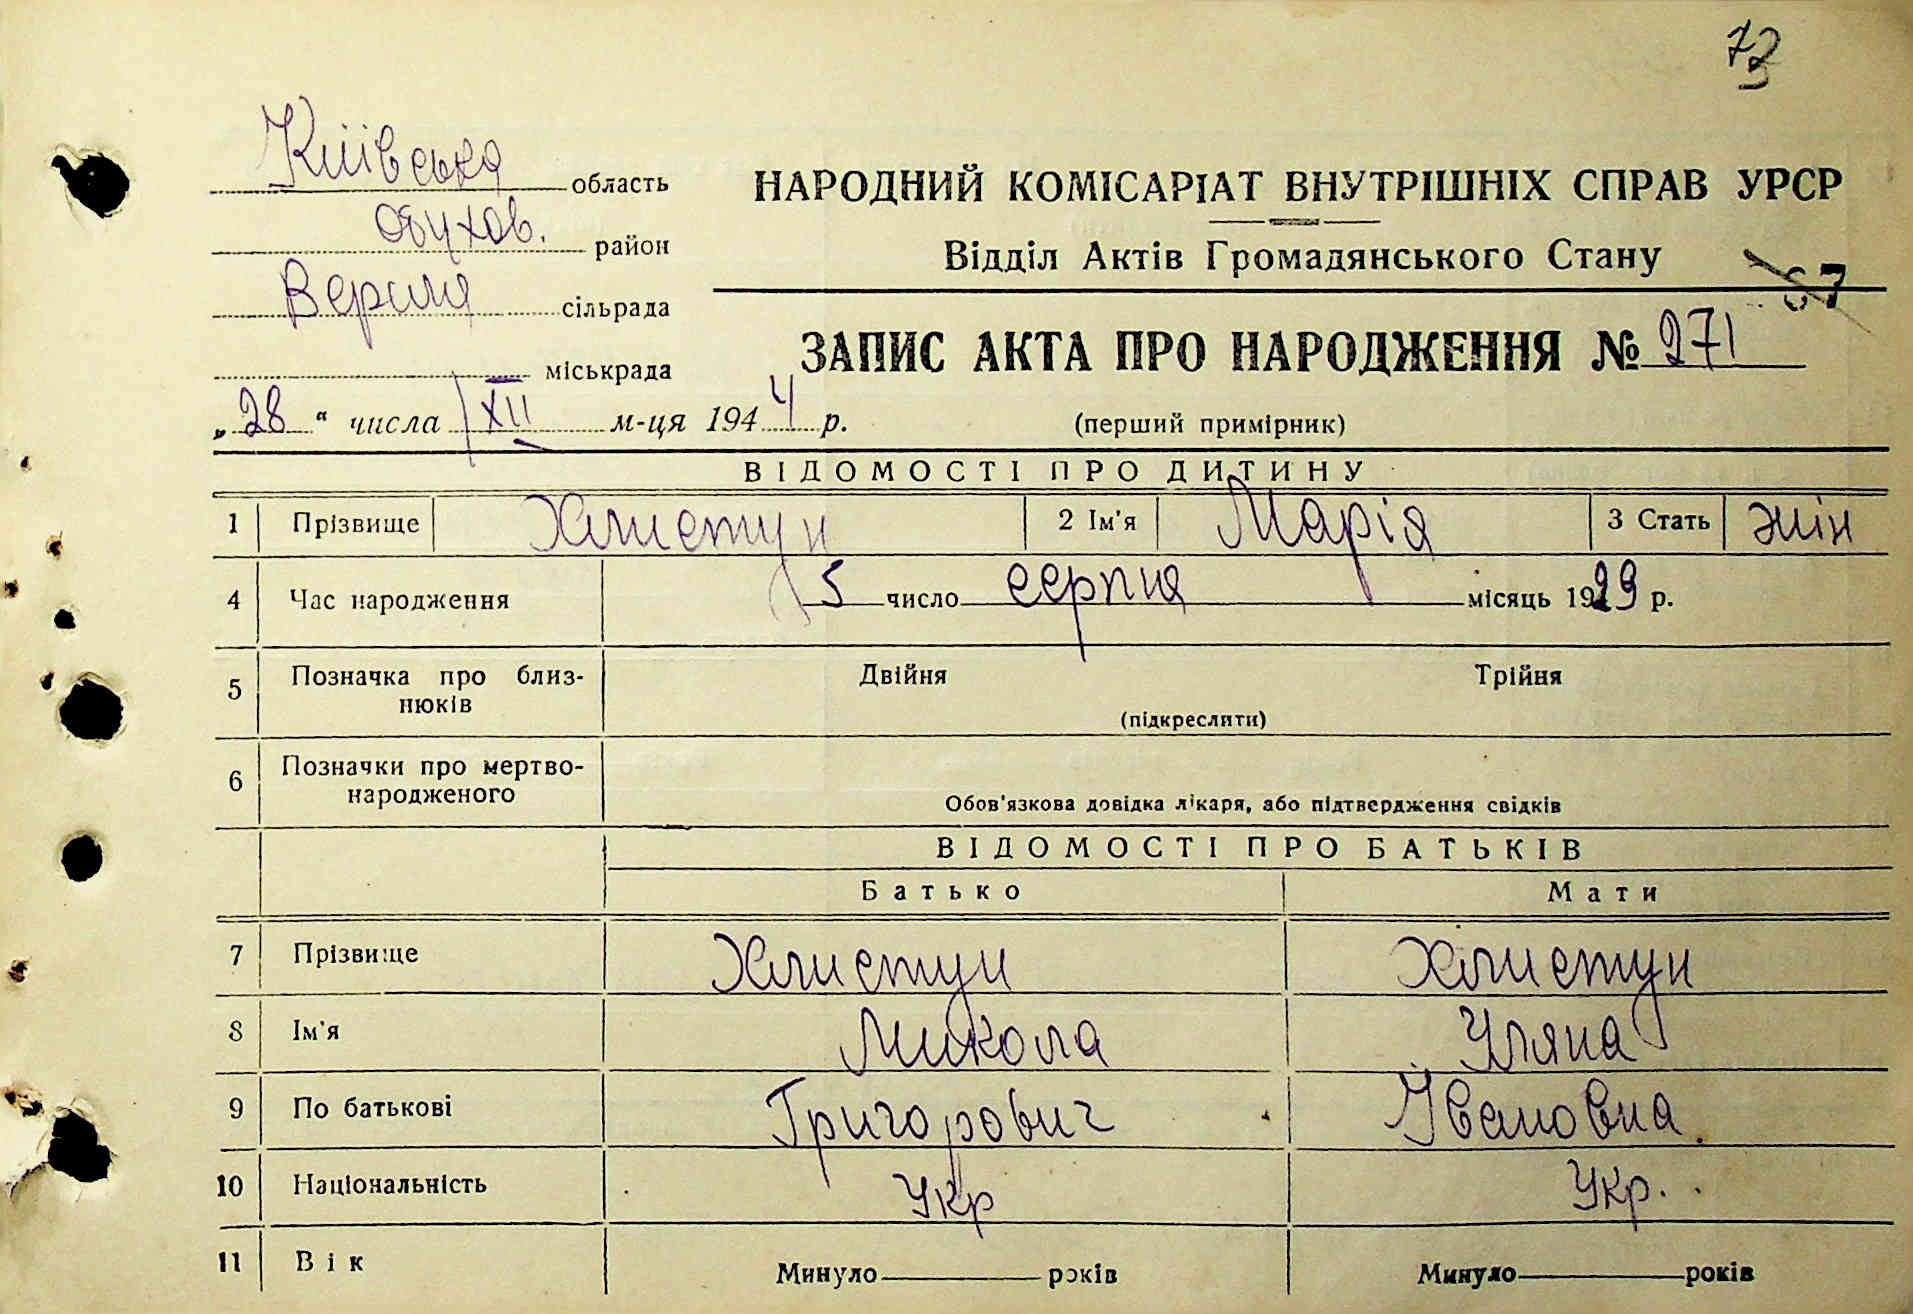 72
Київська область
НАРОДНИЙ КОМІСАРІАТ ВНУТРІШНІХ СПРАВ УРСР
Обухов. район
Відділ Актів Громадянського Стану
67
сільрада
ЗАПИС АКТА ПРО НАРОДЖЕННЯ № 271
міськрада
„28“ числа XII м-ця 1944 р.
(перший примірник)
ВІДОМОСТІ ПРО ДИТИНУ
1 Прізвище Хлистун 2 Ім'я Марія 3 Стать жін
4 Час народження 5 число серпня місяць 1929 р.
5 Позначка про близ-
нюків
Двійня Трійня
(підкреслити)
6 Позначки про мертво-
народженого
Обов'язкова довідка лікаря, або підтвердження свідків
ВІДОМОСТІ ПРО БАТЬКІВ
Батько Мати
7 Прізвище Хлистун Хлистун
8 Ім'я Микола Уляна
9 По батькові Григорович Івановна
10 Національність Укр Укр.
11 Вік Минуло років Минуло років